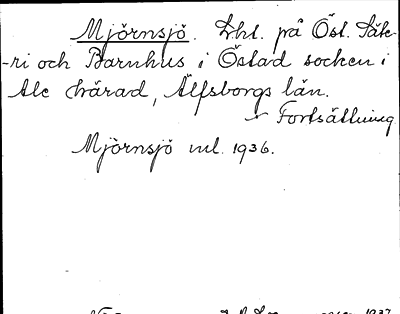 Mjörnsjö. Lht. på Öst. Säte-
-ri och Barnhus i Östad socken i
Ale härad, Älfsborgs län.
Fortsättning
Mjörnsjö ml. 1936.
1937